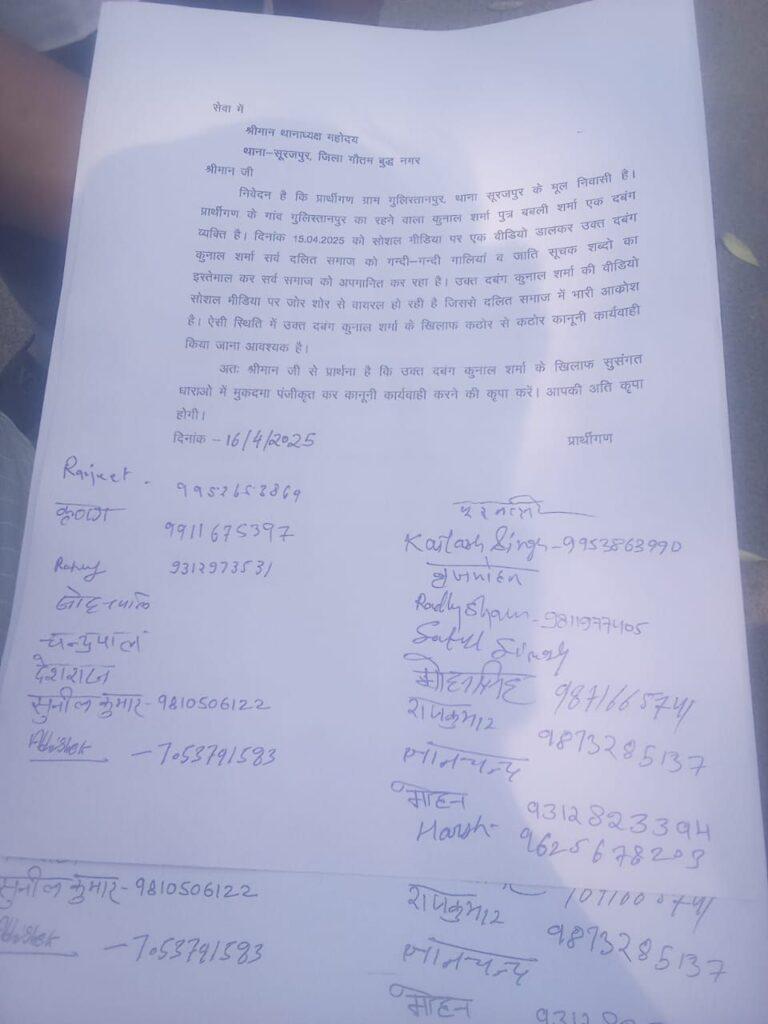 सेवा में
श्रीमान थानाध्यक्ष महोदय
थाना–सूरजपुर, जिला गौतम बुद्ध नगर
श्रीमान जी
निवेदन है कि प्रार्थीगण ग्राम गुलिस्तानपुर, थाना सूरजपुर के मूल निवासी है।
प्रार्थीगण के गांव गुलिस्तानपुर का रहने वाला कुनाल शर्मा पुत्र बबली शर्मा एक दबंग
व्यक्ति है। दिनांक 15.04.2025 को सोशल मीडिया पर एक वीडियो डालकर उक्त दबंग
कुनाल शर्मा सर्व दलित समाज को गन्दी–गन्दी गालियां व जाति सूचक शब्दो का
इस्तेमाल कर सर्व समाज को अपमानित कर रहा है। उक्त दबंग कुनाल शर्मा की वीडियो
सोशल मीडिया पर जोर शोर से वायरल हो रही है जिससे दलित समाज में भारी आकोश
है। ऐसी स्थिति में उक्त दबंग कुनाल शर्मा के खिलाफ कठोर से कठोर कानूनी कार्यवाही
किया जाना आवश्यक है।
अतः श्रीमान जी से प्रार्थना है कि उक्त दबंग कुनाल शर्मा के खिलाफ सुसंगत
धाराओ में मुकदमा पंजीकृत कर कानूनी कार्यवाही करने की कृपा करें। आपकी अति कृपा
होगी।
दिनांक – 16/4/2025 प्रार्थीगण
Ranjeet -
कृष्ण
9911675397
Kailash Singh - 9953863990
9312973531
बृजमोहन
Radhy Sham - 9811977405
चन्द्रपाल
Satish Singh
देशराज
सुनील कुमार - 9810506122
राजकुमार 9873285137
Abhishek - 7053791583
ज्ञानचन्द
मोहन 9312823394
Harsh - 9625678203
सुनील कुमार - 9810506122
राजकुमार 9873285137
Abhishek - 7053791583
ज्ञानचन्द
मोहन